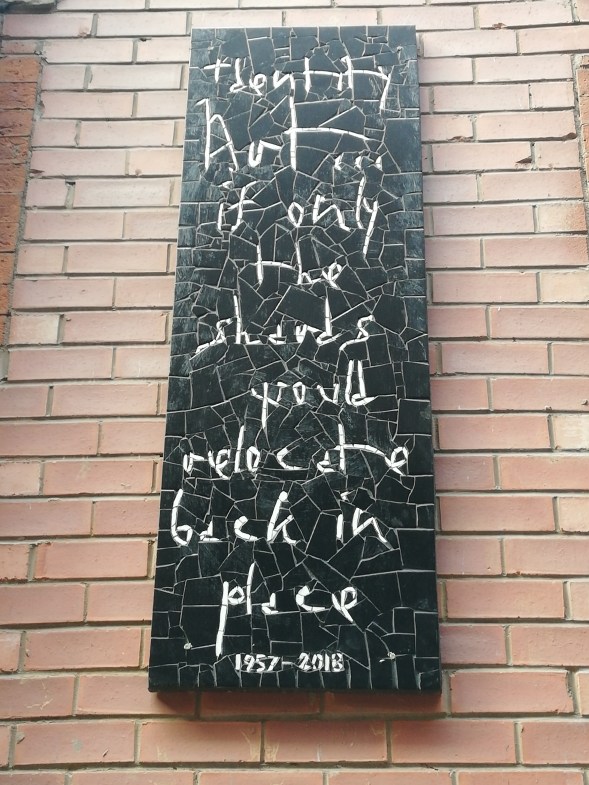 Identity
Hut ...
if only
the
shards
would
relocate
back in
place
1957-2018